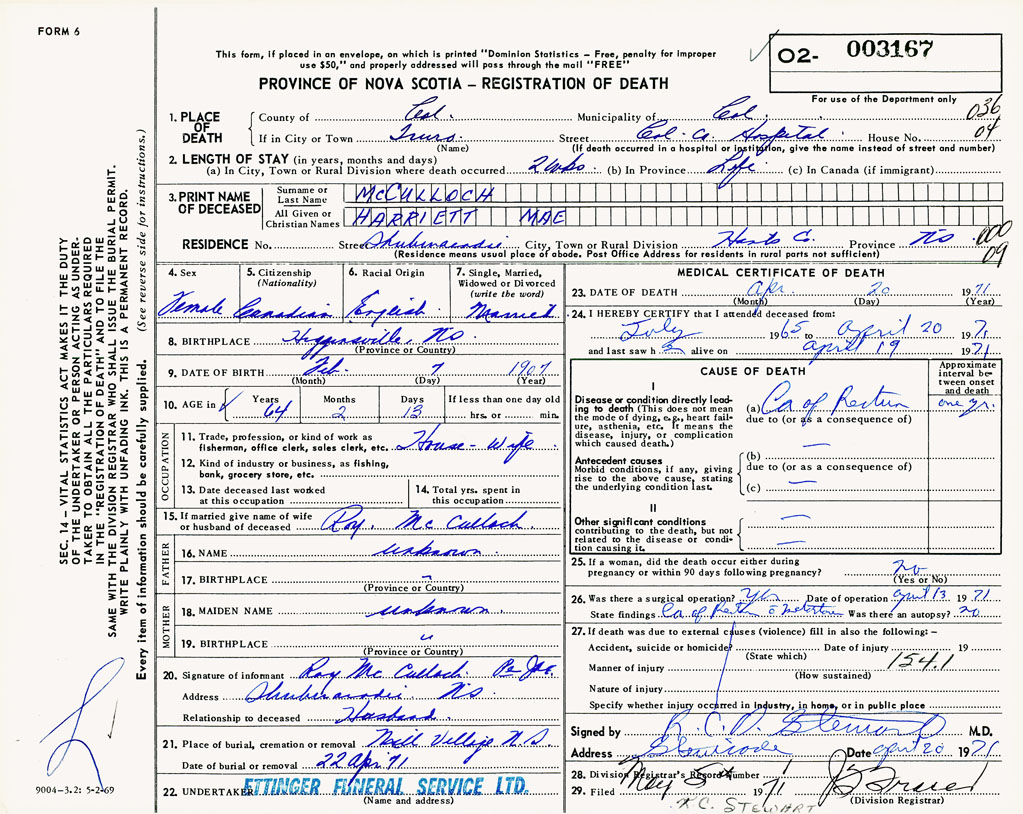 FORM 6
This form, if placed in an envelope, on which is printed "Dominion Statistics – Free, penalty for improper
use $50," and properly addressed will pass through the mail "FREE"
O2- 003167
PROVINCE OF NOVA SCOTIA – REGISTRATION OF DEATH
For use of the Department only
036
04
1. PLACE OF DEATH
County of Col. Municipality of Col.
If in City or Town Truro Street Col. Co. Hospital House No.
(Name) (If death occurred in a hospital or institution, give the name instead of street and number)
2. LENGTH OF STAY (in years, months and days)
(a) In City, Town or Rural Division where death occurred 2 wks (b) In Province Life (c) In Canada (if immigrant)
3. PRINT NAME OF DECEASED
Surname or Last Name McCULLOCH
All Given or Christian Names HARRIETT MAE
RESIDENCE No. Street Shubenacadie City, Town or Rural Division Hants Co. Province NS
000
09
(Residence means usual place of abode. Post Office Address for residents in rural parts not sufficient)
4. Sex
Female
5. Citizenship
(Nationality)
Canadian
6. Racial Origin
English
7. Single, Married,
Widowed or Divorced
(write the word)
Married
8. BIRTHPLACE Higginsville, NS
(Province or Country)
9. DATE OF BIRTH Feb. 7 1907
(Month) (Day) (Year)
10. AGE in
Years Months Days If less than one day old
64 2 13 hrs. or min.
OCCUPATION
11. Trade, profession, or kind of work as
fisherman, office clerk, sales clerk, etc. House-Wife
12. Kind of industry or business, as fishing,
bank, grocery store, etc.
13. Date deceased last worked
at this occupation
14. Total yrs. spent in
this occupation
15. If married give name of wife
or husband of deceased Roy. McCulloch
FATHER
16. NAME unknown
17. BIRTHPLACE "
(Province or Country)
MOTHER
18. MAIDEN NAME unknown
19. BIRTHPLACE "
(Province or Country)
20. Signature of informant Roy McCulloch
Address Shubenacadie NS
Relationship to deceased Husband
21. Place of burial, cremation or removal Noel Village N.S.
Date of burial or removal 22 Apr 71
22. UNDERTAKER ETTINGER FUNERAL SERVICE LTD.
(Name and address)
MEDICAL CERTIFICATE OF DEATH
23. DATE OF DEATH Apr. 20 1971
(Month) (Day) (Year)
24. I HEREBY CERTIFY that I attended deceased from:
July 1965 to April 20 1971
and last saw h alive on April 19 1971
CAUSE OF DEATH
Approximate
interval be-
tween onset
and death
I
Disease or condition directly lead-
ing to death (This does not mean
the mode of dying, e.g., heart fail-
ure, asthenia, etc. It means the
disease, injury, or complication
which caused death.)
(a) Ca of Rectum one yr.
due to (or as a consequence of)
—
Antecedent causes
Morbid conditions, if any, giving
rise to the above cause, stating
the underlying condition last.
(b)
due to (or as a consequence of)
(c) —
II
Other significant conditions
contributing to the death, but not
related to the disease or condi-
tion causing it.
—
—
25. If a woman, did the death occur either during
pregnancy or within 90 days following pregnancy? no
(Yes or No)
26. Was there a surgical operation? Yes Date of operation April 13 1971
State findings Ca of Rectum Was there an autopsy? no
27. If death was due to external causes (violence) fill in also the following:–
Accident, suicide or homicide? Date of injury 19
(State which)
1541
Manner of injury
(How sustained)
Nature of injury
Specify whether injury occurred in Industry, in home, or in public place
Signed by R. C. D. Stewart M.D.
Address Stewiacke Date April 20 1971
28. Division Registrar's Record Number 1
29. Filed May 5th 1971
(Division Registrar)
R.C. STEWART
SEC. 14 – VITAL STATISTICS ACT MAKES IT THE DUTY
OF THE UNDERTAKER OR PERSON ACTING AS UNDER-
TAKER TO OBTAIN ALL THE PARTICULARS REQUIRED
IN THE "REGISTRATION OF DEATH" AND TO FILE THE
SAME WITH THE DIVISION REGISTRAR WHO SHALL ISSUE THE BURIAL PERMIT.
WRITE PLAINLY WITH UNFADING INK. THIS IS A PERMANENT RECORD.
Every item of information should be carefully supplied. (See reverse side for instructions.)
9004–3.2: 5-2-69